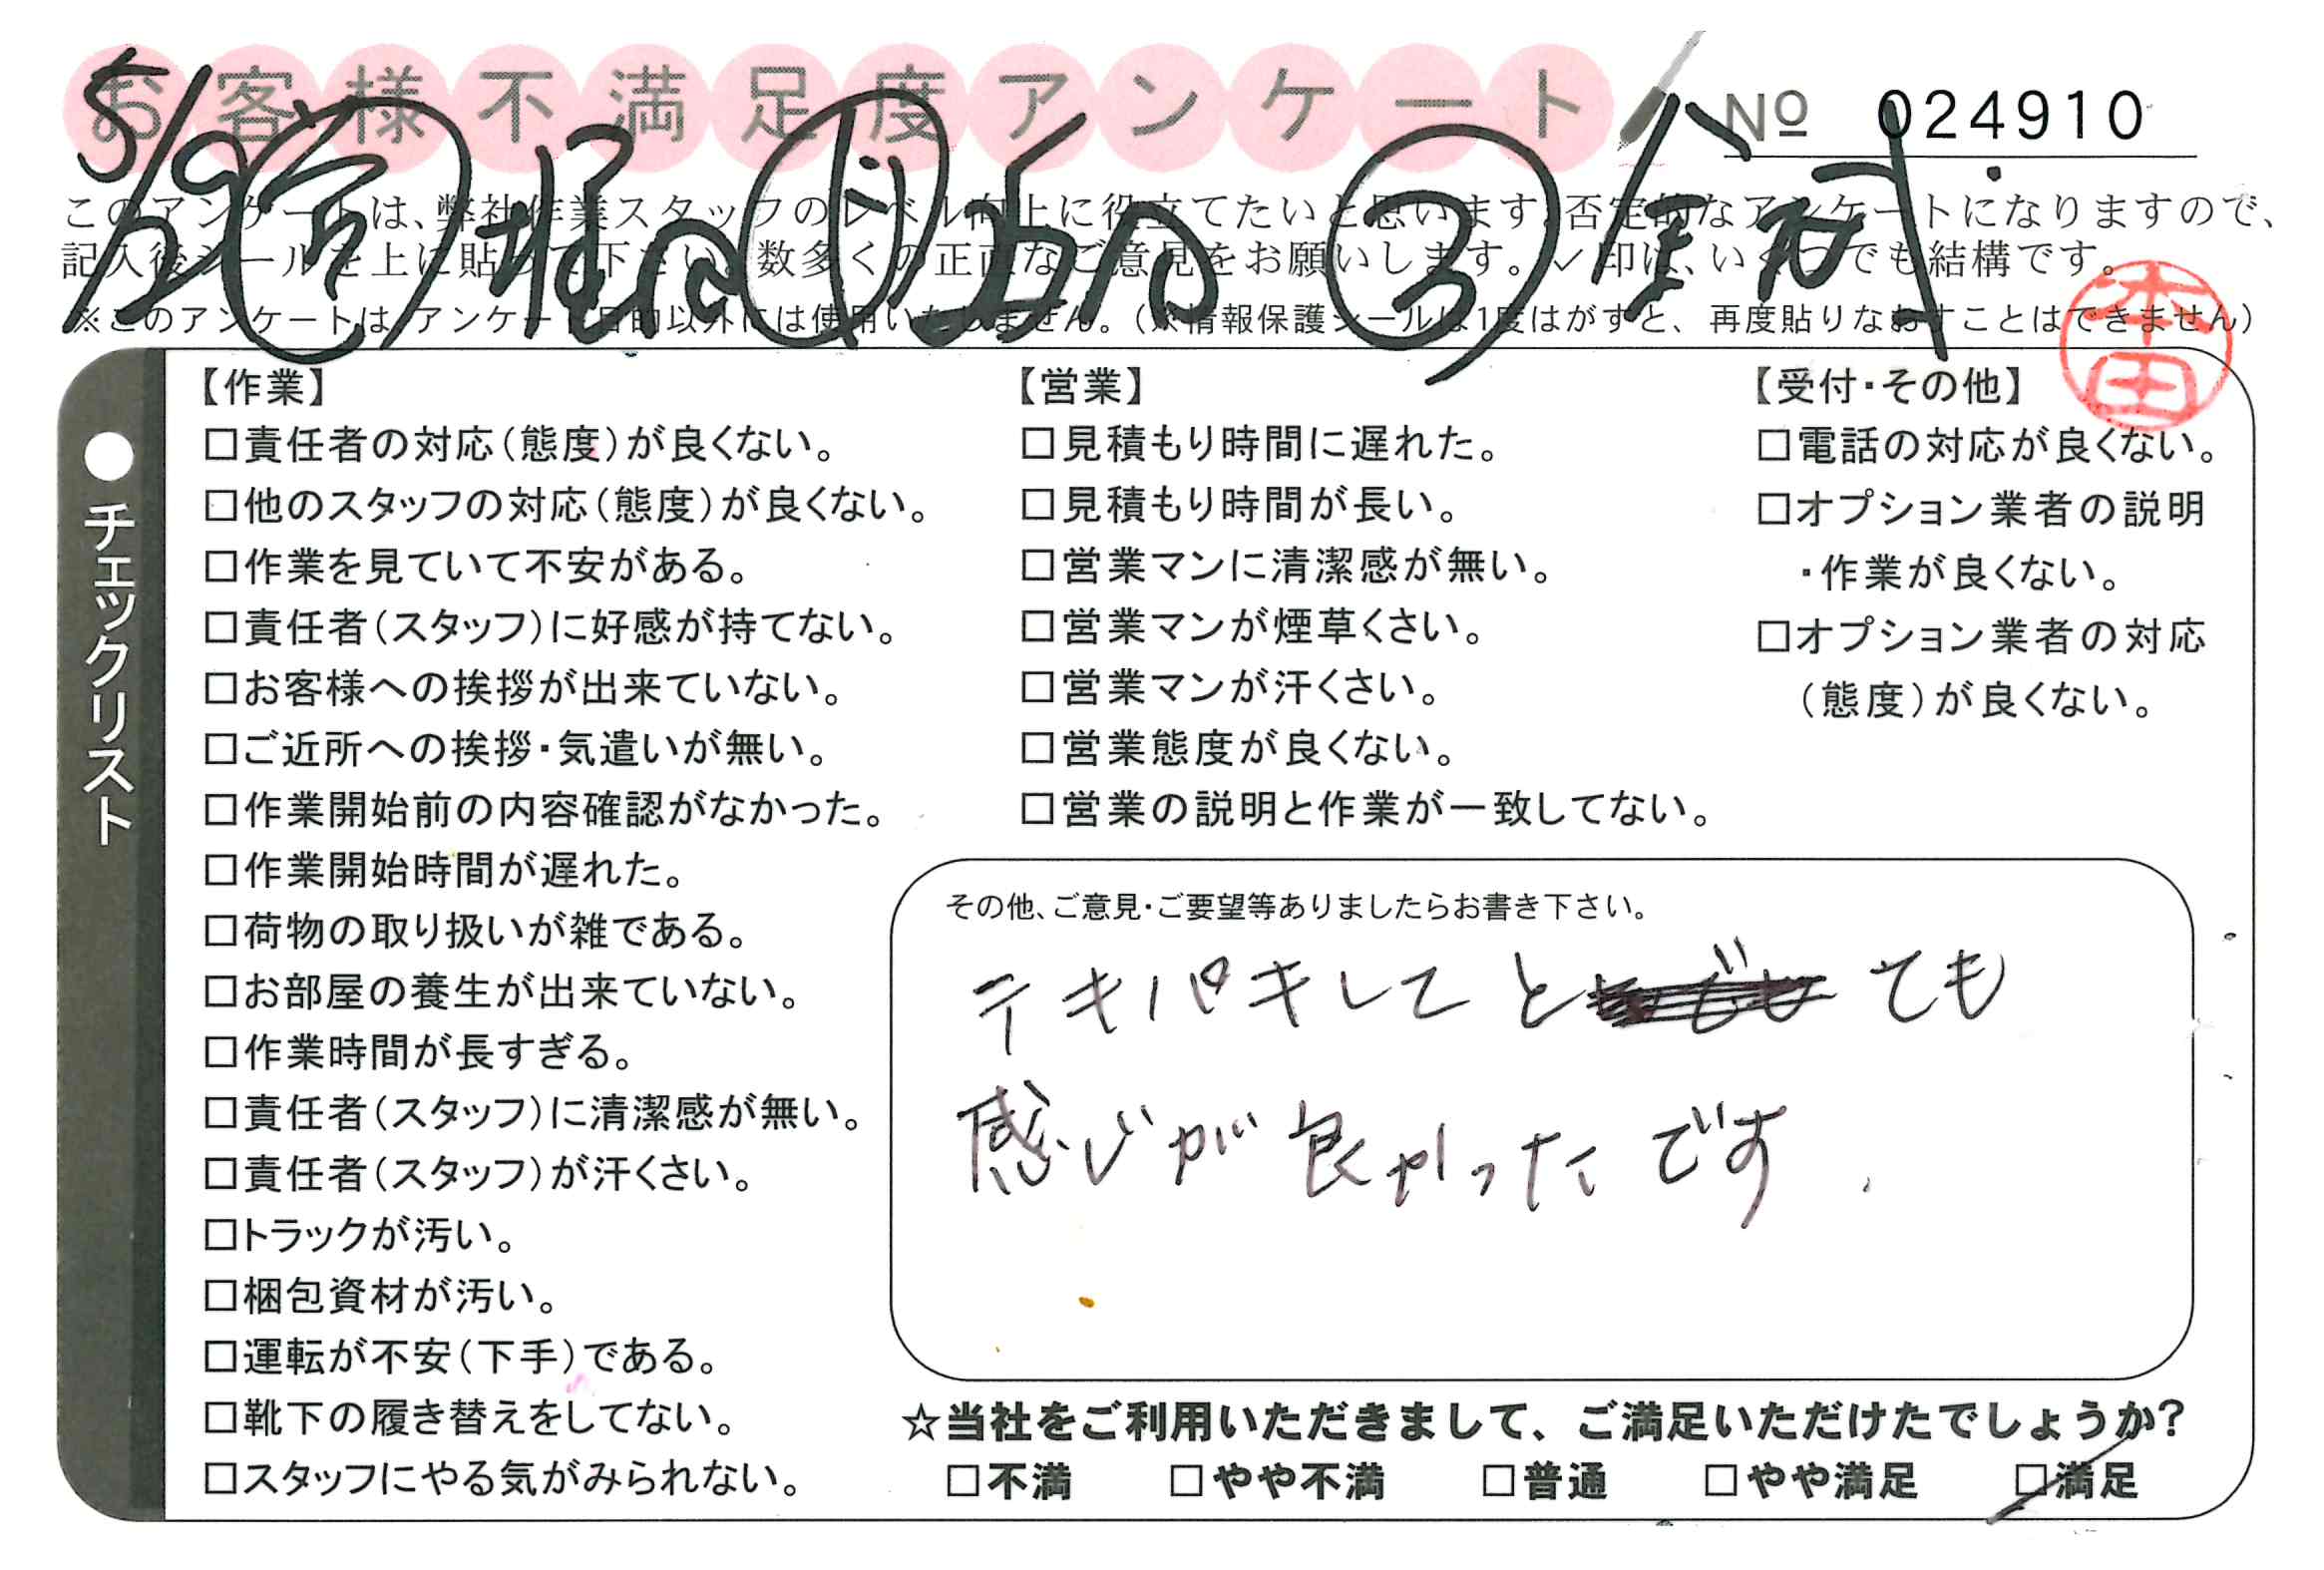 お客様不満足度アンケート
№ 024910
このアンケートは、弊社作業スタッフのレベル向上に役立てたいと思います。否定的なアンケートになりますので、
記入後シールを上に貼って下さい。数多くの正直なご意見をお願いします。✓印は、いくつでも結構です。
※このアンケートは、アンケート目的以外には使用いたしません。(※情報保護シールは1度はがすと、再度貼りなおすことはできません)
本田
●チェックリスト
【作業】
□責任者の対応(態度)が良くない。
□他のスタッフの対応(態度)が良くない。
□作業を見ていて不安がある。
□責任者(スタッフ)に好感が持てない。
□お客様への挨拶が出来ていない。
□ご近所への挨拶・気遣いが無い。
□作業開始前の内容確認がなかった。
□作業開始時間が遅れた。
□荷物の取り扱いが雑である。
□お部屋の養生が出来ていない。
□作業時間が長すぎる。
□責任者(スタッフ)に清潔感が無い。
□責任者(スタッフ)が汗くさい。
□トラックが汚い。
□梱包資材が汚い。
□運転が不安(下手)である。
□靴下の履き替えをしてない。
□スタッフにやる気がみられない。
【営業】
□見積もり時間に遅れた。
□見積もり時間が長い。
□営業マンに清潔感が無い。
□営業マンが煙草くさい。
□営業マンが汗くさい。
□営業態度が良くない。
□営業の説明と作業が一致してない。
【受付・その他】
□電話の対応が良くない。
□オプション業者の説明
・作業が良くない。
□オプション業者の対応
(態度)が良くない。
その他、ご意見・ご要望等ありましたらお書き下さい。
テキパキして と ても
感じが良かったです.
☆当社をご利用いただきまして、ご満足いただけたでしょうか?
□不満 □やや不満 □普通 □やや満足 □満足